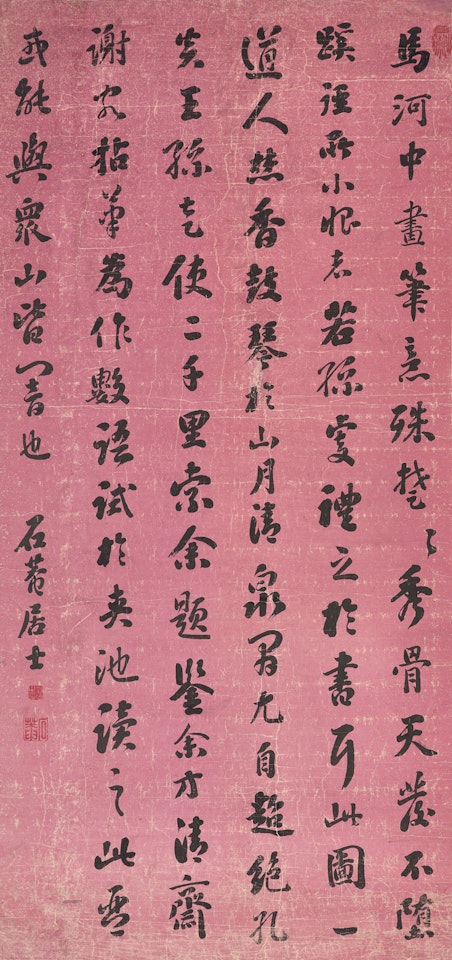 馬河中畫筆意殊楚〻秀骨天發不墮
蹊徑所小恨者若孫虔禮之於書耳此圖一
道人焚香鼓琴於山月清泉間尤自超絕孔
炎王孫乞使二千里索余題鑒余方清齋
謝客拈筆為作數語試於夾池讀之此
或能與眾山皆響也
石菴居士